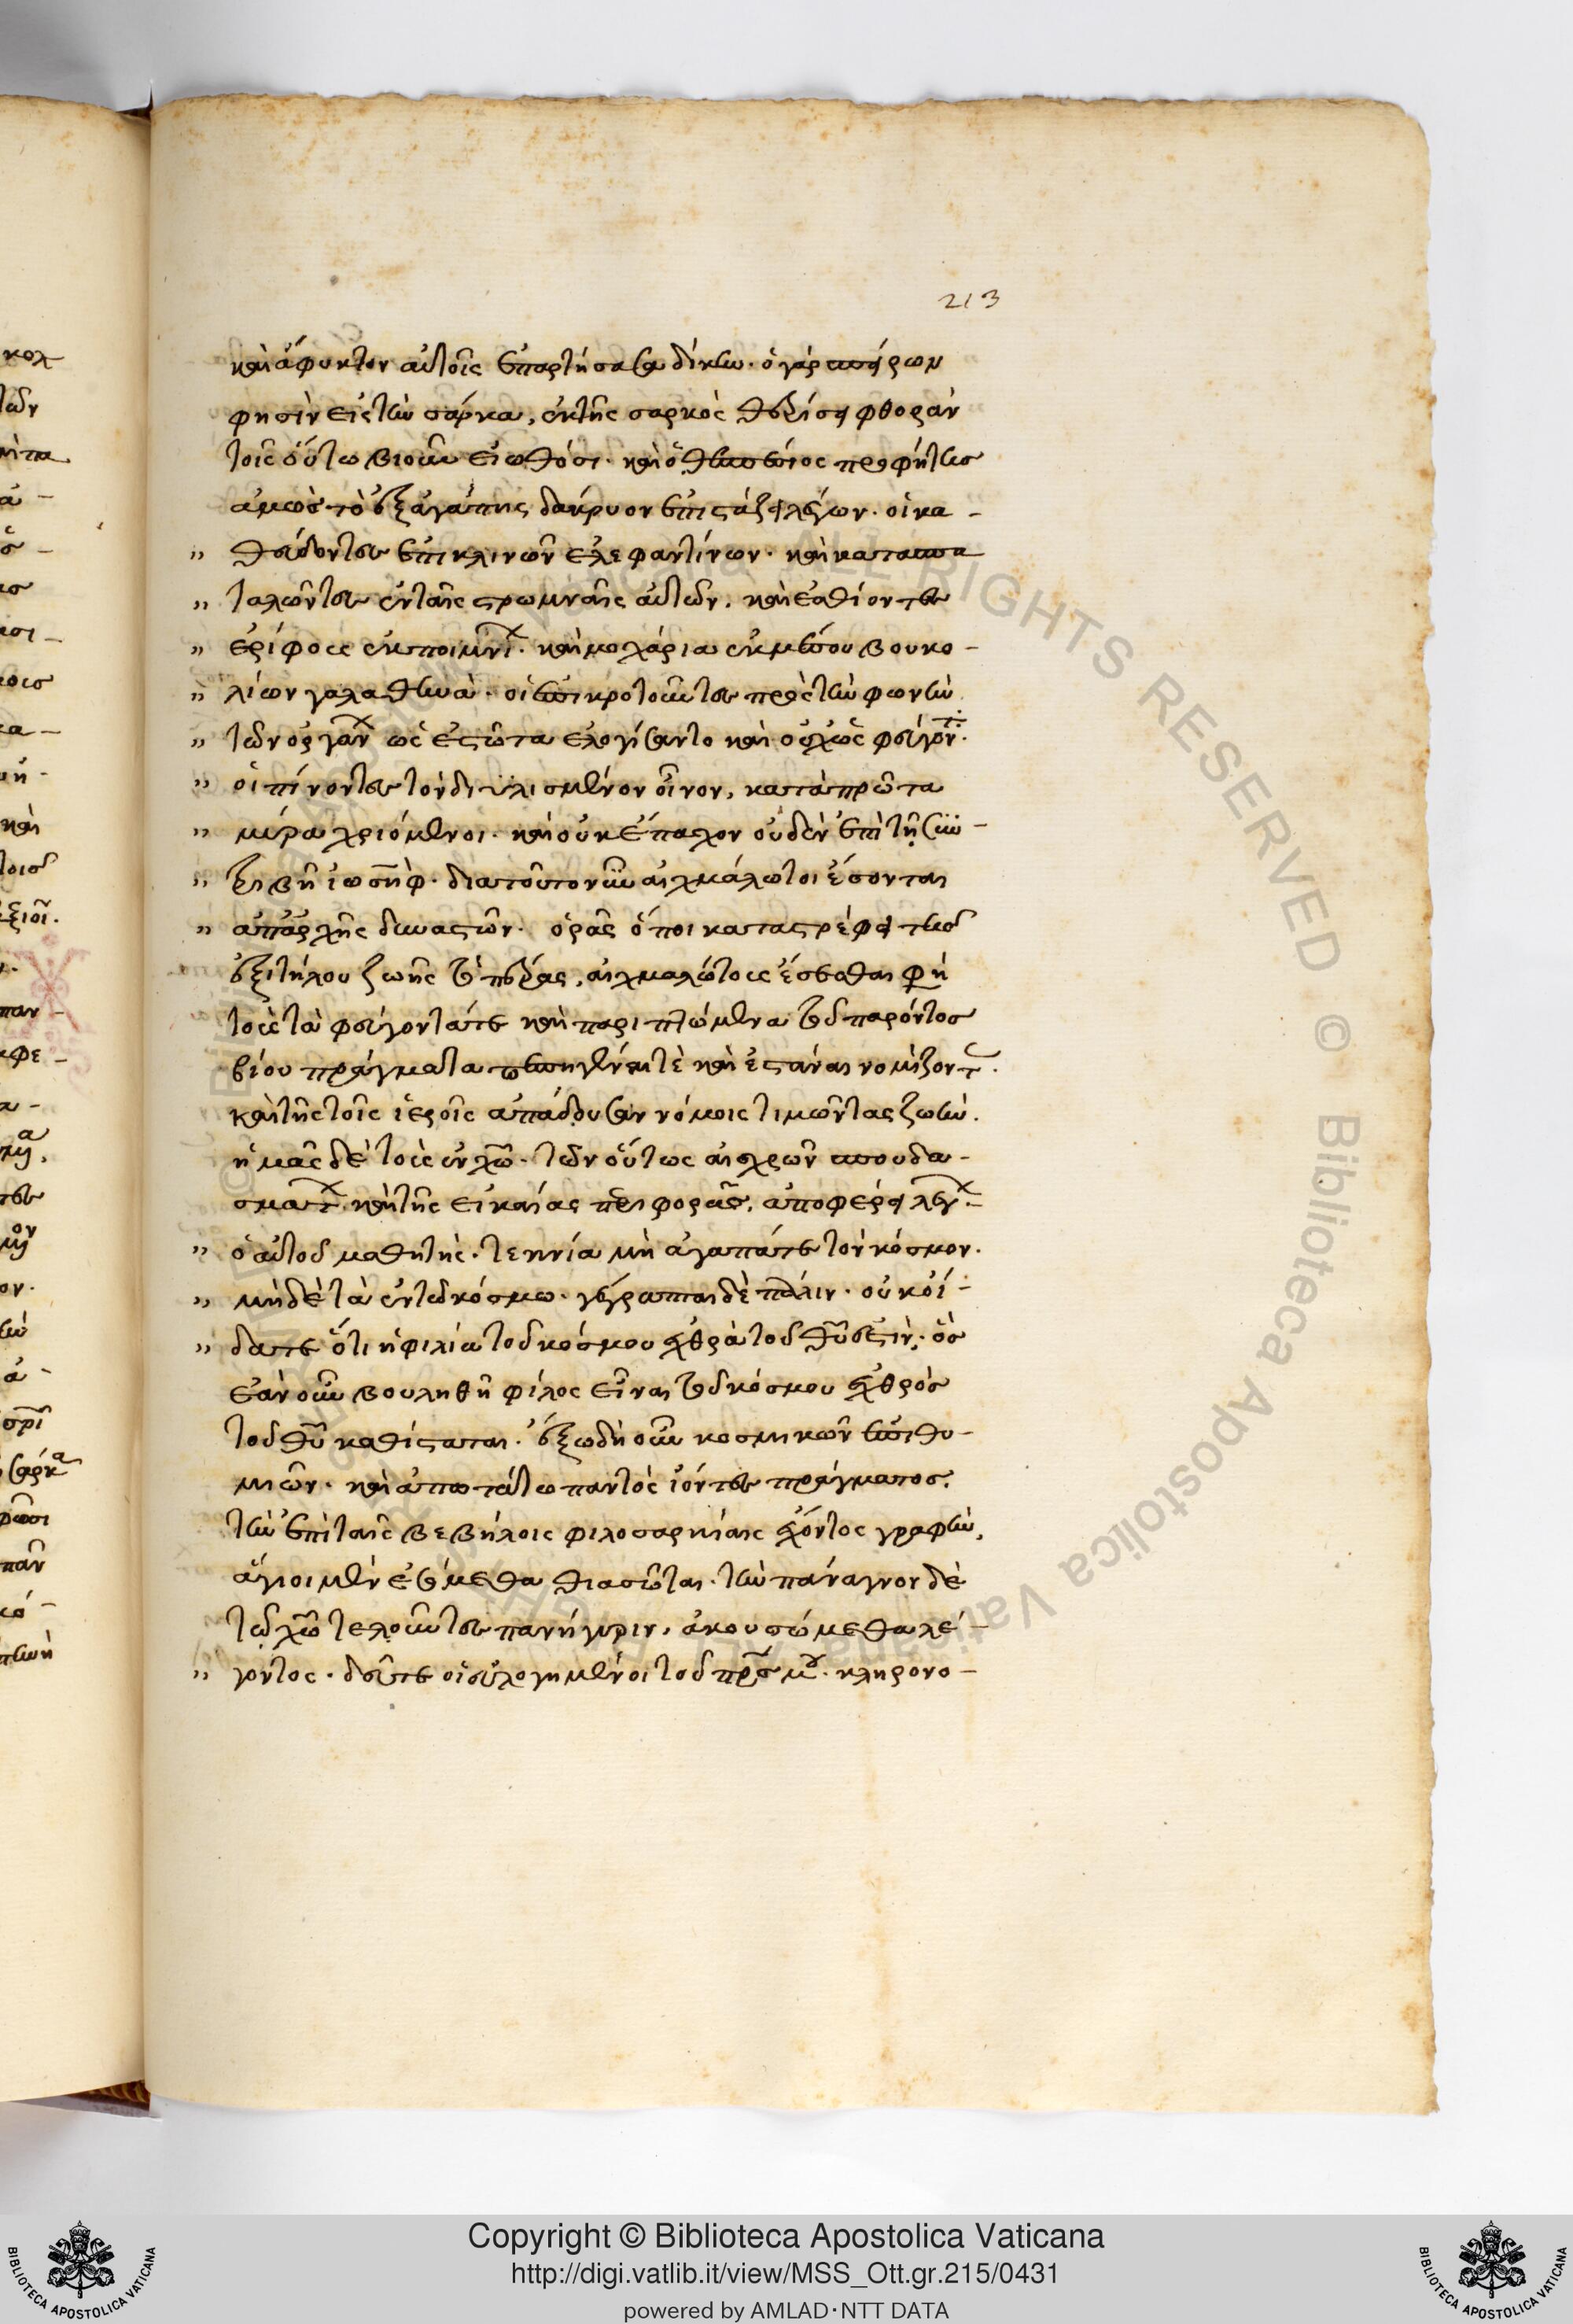 213
καὶ ἄφυκτον αὐτοῖς ἐπαρτήσασα δίκην. ὁ γὰρ σπείρων
φησὶν εἰς τὴν σάρκα, ἐκ τῆς σαρκὸς θερίσει φθορὰν
τοῖς οὕτω βιοῦν εἰωθόσι. καὶ ὁ θεσπέσιος προφήτης
ἀμὼς τὸ ἐξ ἀγάπης δάκρυον ἐπιστάζει λέγων. οἱ κα-
" θεύδοντες ἐπὶ κλινῶν ἐλεφαντίνων. καὶ κατασπα
" ταλῶντες ἐν ταῖς στρωμναῖς αὐτῶν. καὶ ἐσθίοντες
" ἐρίφους ἐκ ποιμνί. καὶ μοσχάρια ἐκ μέσου βουκο-
" λίων γαλαθηνά. οἱ ἐπικροτοῦντες πρὸς τὴν φωνὴν
" τῶν ὀργάν ὡς ἑστῶτα ἐλογίσαντο καὶ οὐχ ὡς φεύγοντ.
" οἱ πίνοντες τὸν διϋλισμένον οἶνον, κατὰ πρῶτα
" μύρα χριόμενοι. καὶ οὐκ ἔπασχον οὐδὲν ἐπὶ τῇ συν-
" τριβῇ ἰωσὴφ. διατοῦτο νῦν αἰχμάλωτοι ἔσονται
" ἀπ' ἀρχῆς δυναστῶν. ὁρᾷς ὅποι καταστρέφει τῆς
ἐξιτήλου ζωῆς τὸ πέρας, αἰχμαλώτους ἔσεσθαι φη
τοὺς τὰ φεύγοντάτε καὶ παριπτάμενα τοῦ παρόντος
βίου πράγματα πεπηγέναι τὲ καὶ ἑστάναι νομίζοντ.
καὶ τῆς τοῖς ἱεροῖς ἀπάδουσαν νόμοις τιμῶντας ζωήν.
ἡμᾶς δὲ τοὺς ἐν χῶ. τῶν οὕτως αἰσχρῶν σπουδα-
σμάτ. καὶ τῆς εἰκαίας περιφορᾶς, ἀποφέρει λέγ.-
" ὁ αὐτοῦ μαθητὴς. τεκνία μὴ ἀγαπᾶτε τὸν κόσμον.
" μηδὲ τὰ ἐν τῶ κόσμω. γέγραπται δὲ πάλιν. οὐκ οἴ-
" δατε ὅτι ἡ φιλία τοῦ κόσμου ἔχθρὰ τοῦ θῦ ἐστιν. ὃς
ἐὰν οὖν βουληθῇ φίλος εἶναι τοῦ κόσμου ἐχθρὸς
τοῦ θῦ καθίσταται. ἔξω δὴ οὖν κοσμικῶν ἐπιθυ-
μιῶν. καὶ ἀπωτάτω παντὸς ἰόντες πράγματος.
τὴν ἐπὶ ταῖς βεβήλοις φιλοσαρκίαις ἔχοντος γραφὴν,
ἅγιοι μὲν ἐσόμεθα θιασῶται. τὴν πάναγνον δὲ
τῶ χῶ τελοῦντες πανήγυριν, ἀκουσώμεθα λέ-
" γοντος. δεῦτε οἱ εὐλογημένοι τοῦ πρς μου. κληρονο-
Copyright © Biblioteca Apostolica Vaticana
http://digi.vatlib.it/view/MSS_Ott.gr.215/0431
powered by AMLAD·NTT DATA